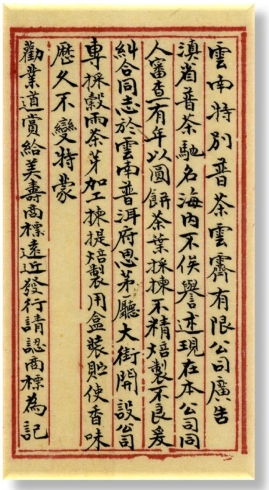 雲南特別普茶雲霽有限公司廣告
滇省普茶馳名海內不俟譽述現在本公司同
人審查有年以圓餅茶葉採揀不精焙製不良爰
糾合同志於雲南普洱府思茅廳大街開設公司
專採穀雨茶芽加工揀提焙製用盒裝貯使香味
歷久不變特蒙
勸業道賞給美壽商標遠近發行請認商標為記